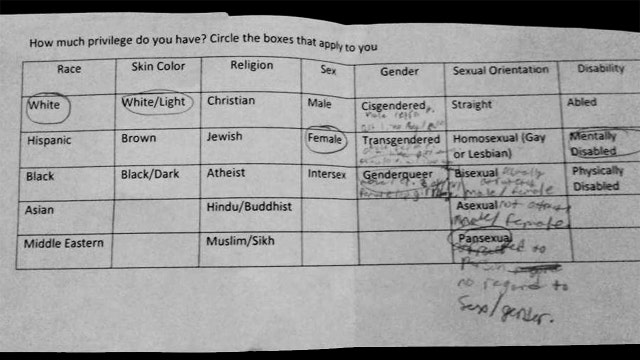 How much privilege do you have? Circle the boxes that apply to you
Race Skin Color Religion Sex Gender Sexual Orientation Disability
White White/Light Christian Male Cisgendered Straight Abled
Hispanic Brown Jewish Female Transgendered Homosexual (Gay or Lesbian) Mentally Disabled
Black Black/Dark Atheist Intersex Genderqueer Bisexual male/female Physically Disabled
Asian Hindu/Buddhist Asexual not male/female
Middle Eastern Muslim/Sikh Pansexual
to
no regard to
Sex/gender.